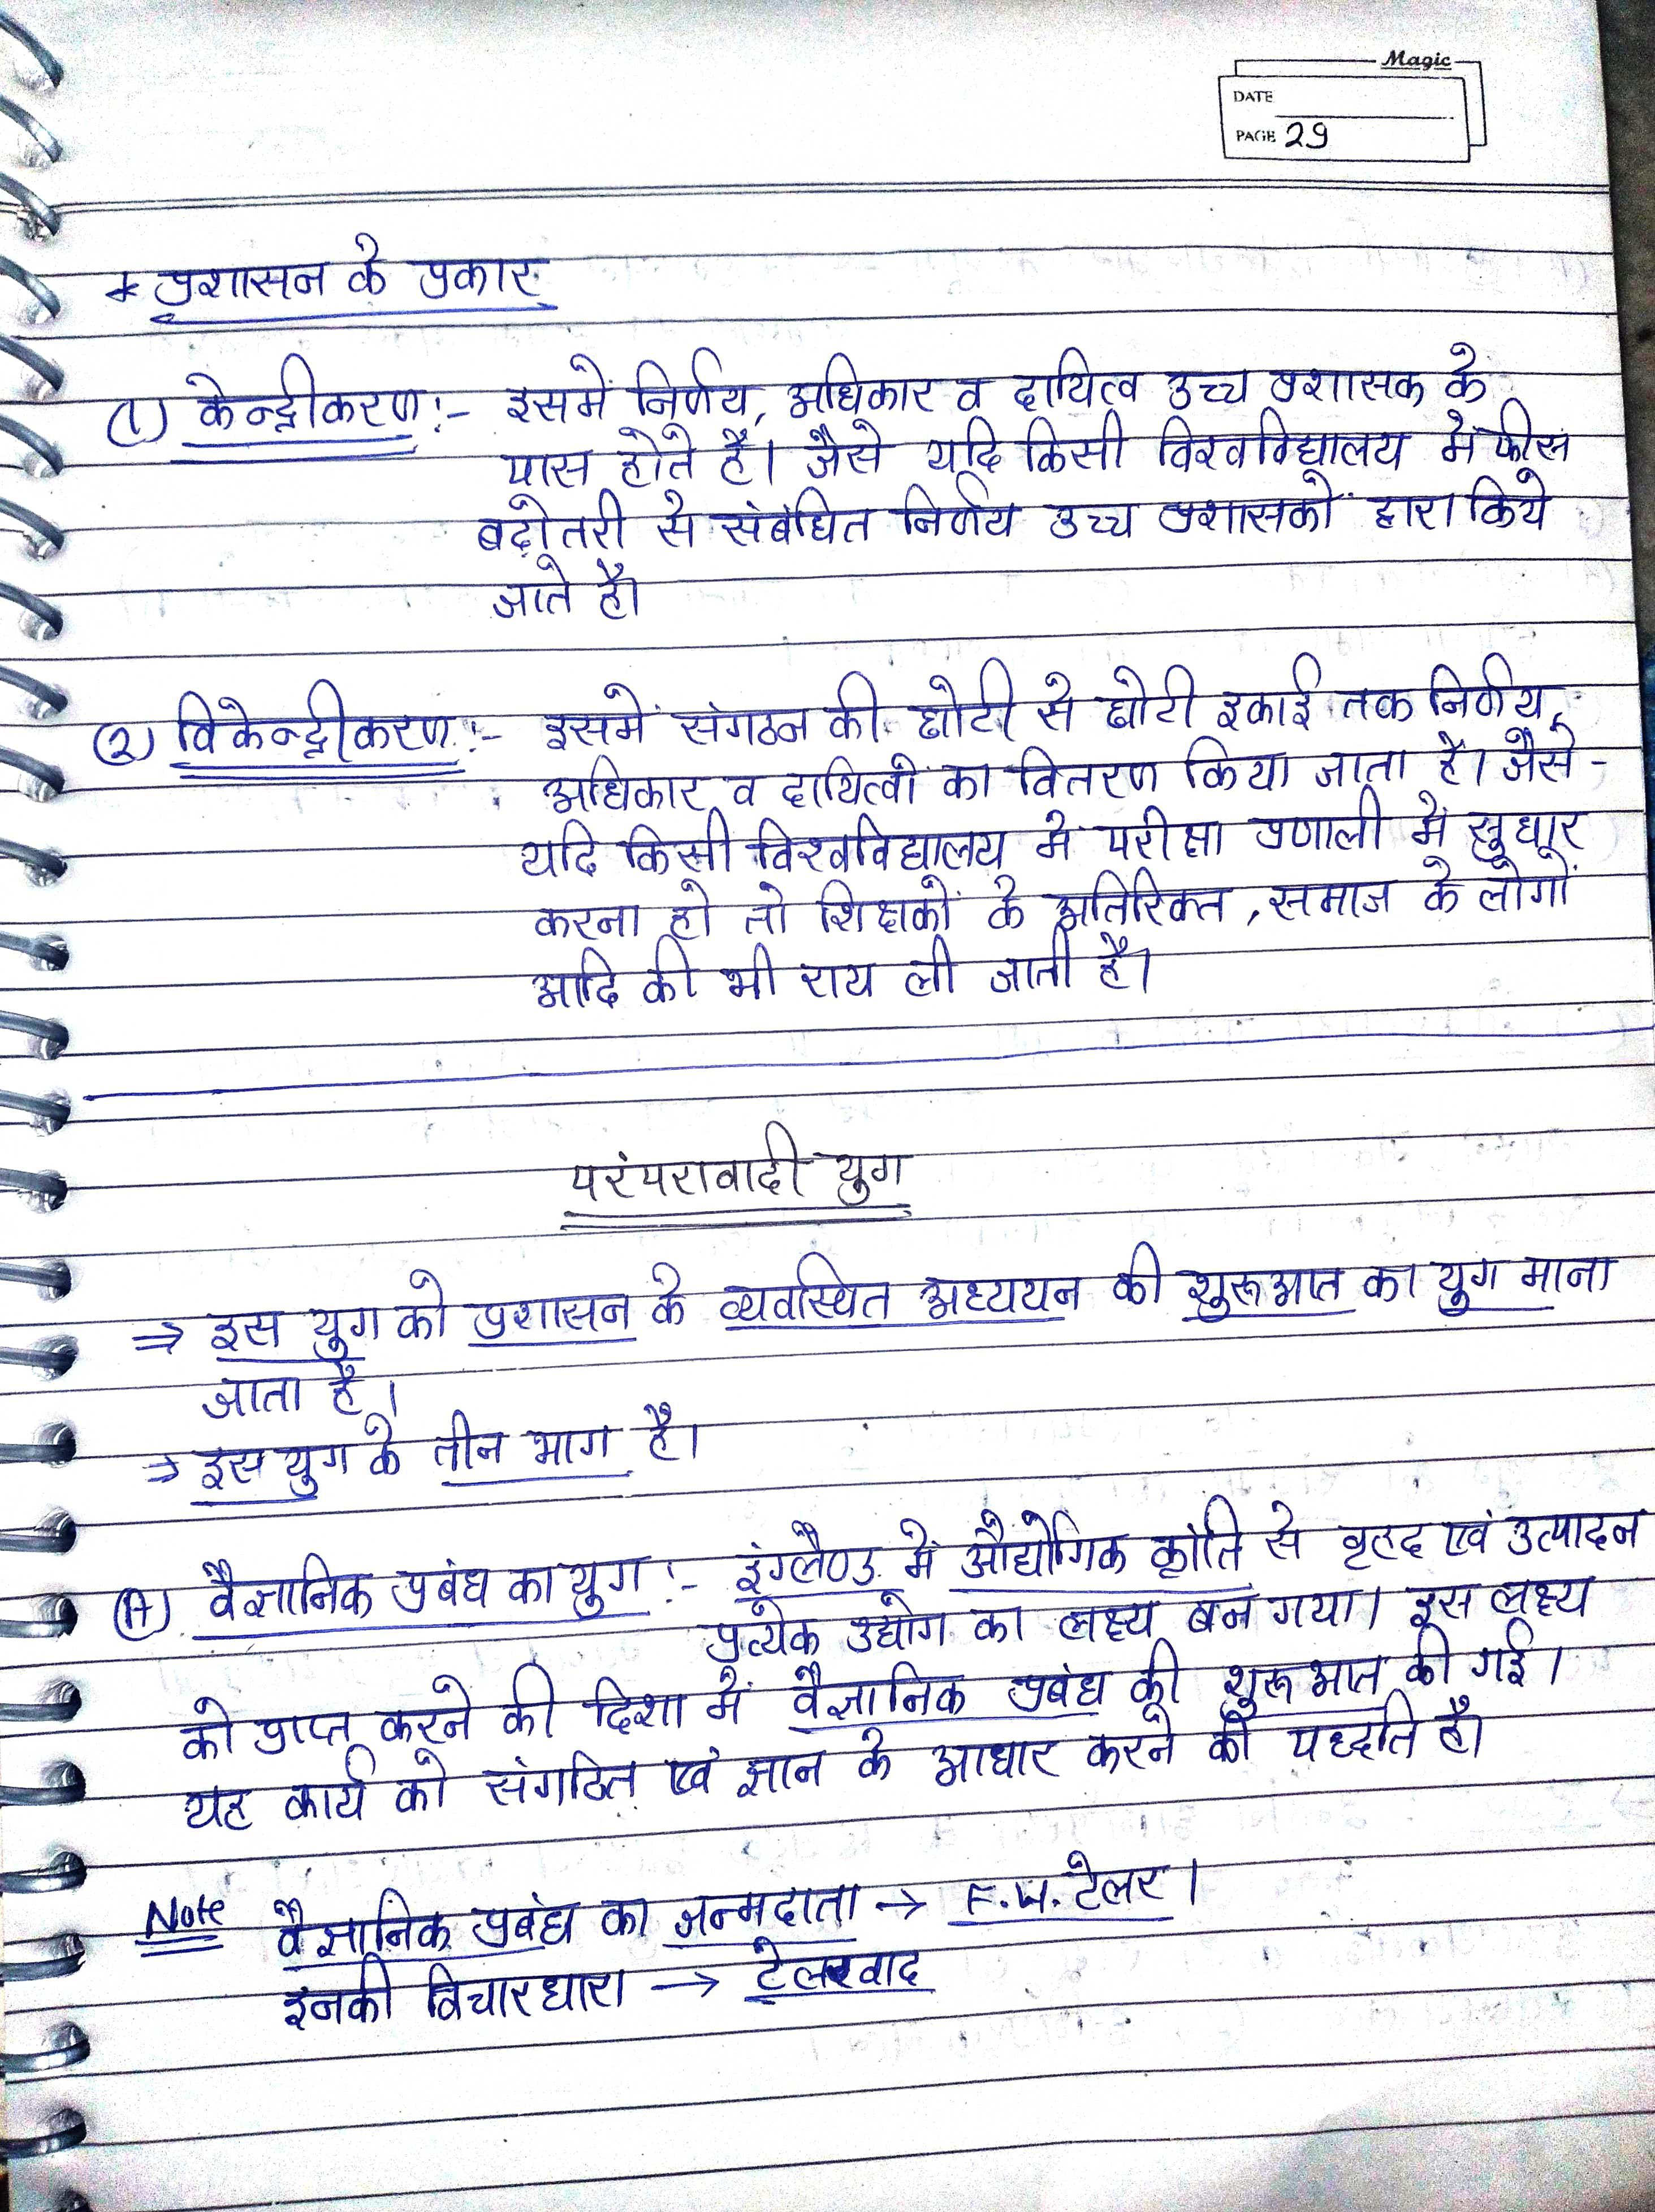 Magic
DATE
PAGE 29
* प्रशासन के प्रकार
(1) केन्द्रीकरण :- इसमें निर्णय, अधिकार व दायित्व उच्च प्रशासक के
पास होते है। जैसे यदि किसी विश्वविद्यालय में फीस
बढ़ोतरी से संबंधित निर्णय उच्च प्रशासकों द्वारा किये
जाते है।
(2) विकेन्द्रीकरण :- इसमें संगठन की छोटी से छोटी इकाई तक निर्णय,
अधिकार व दायित्वों का वितरण किया जाता है। जैसे -
यदि किसी विश्वविद्यालय में परीक्षा प्रणाली में सुधार
करना हो तो शिक्षकों के अतिरिक्त, समाज के लोगों
आदि की भी राय ली जाती है।
परंपरावादी युग
⇒ इस युग को प्रशासन के व्यवस्थित अध्ययन की शुरूआत का युग माना
जाता है।
⇒ इस युग के तीन भाग है।
(A) वैज्ञानिक प्रबंध का युग :- इंग्लैण्ड में औद्योगिक क्रांति से वृहद एवं उत्पादन
प्रत्येक उद्योग का लक्ष्य बन गया। इस लक्ष्य
को प्राप्त करने की दिशा में वैज्ञानिक प्रबंध की शुरूआत की गई।
यह कार्य को संगठित एवं ज्ञान के आधार करने की पध्दति है।
Note वैज्ञानिक प्रबंध का जन्मदाता → F.W. टेलर।
इनकी विचारधारा → टेलरवाद